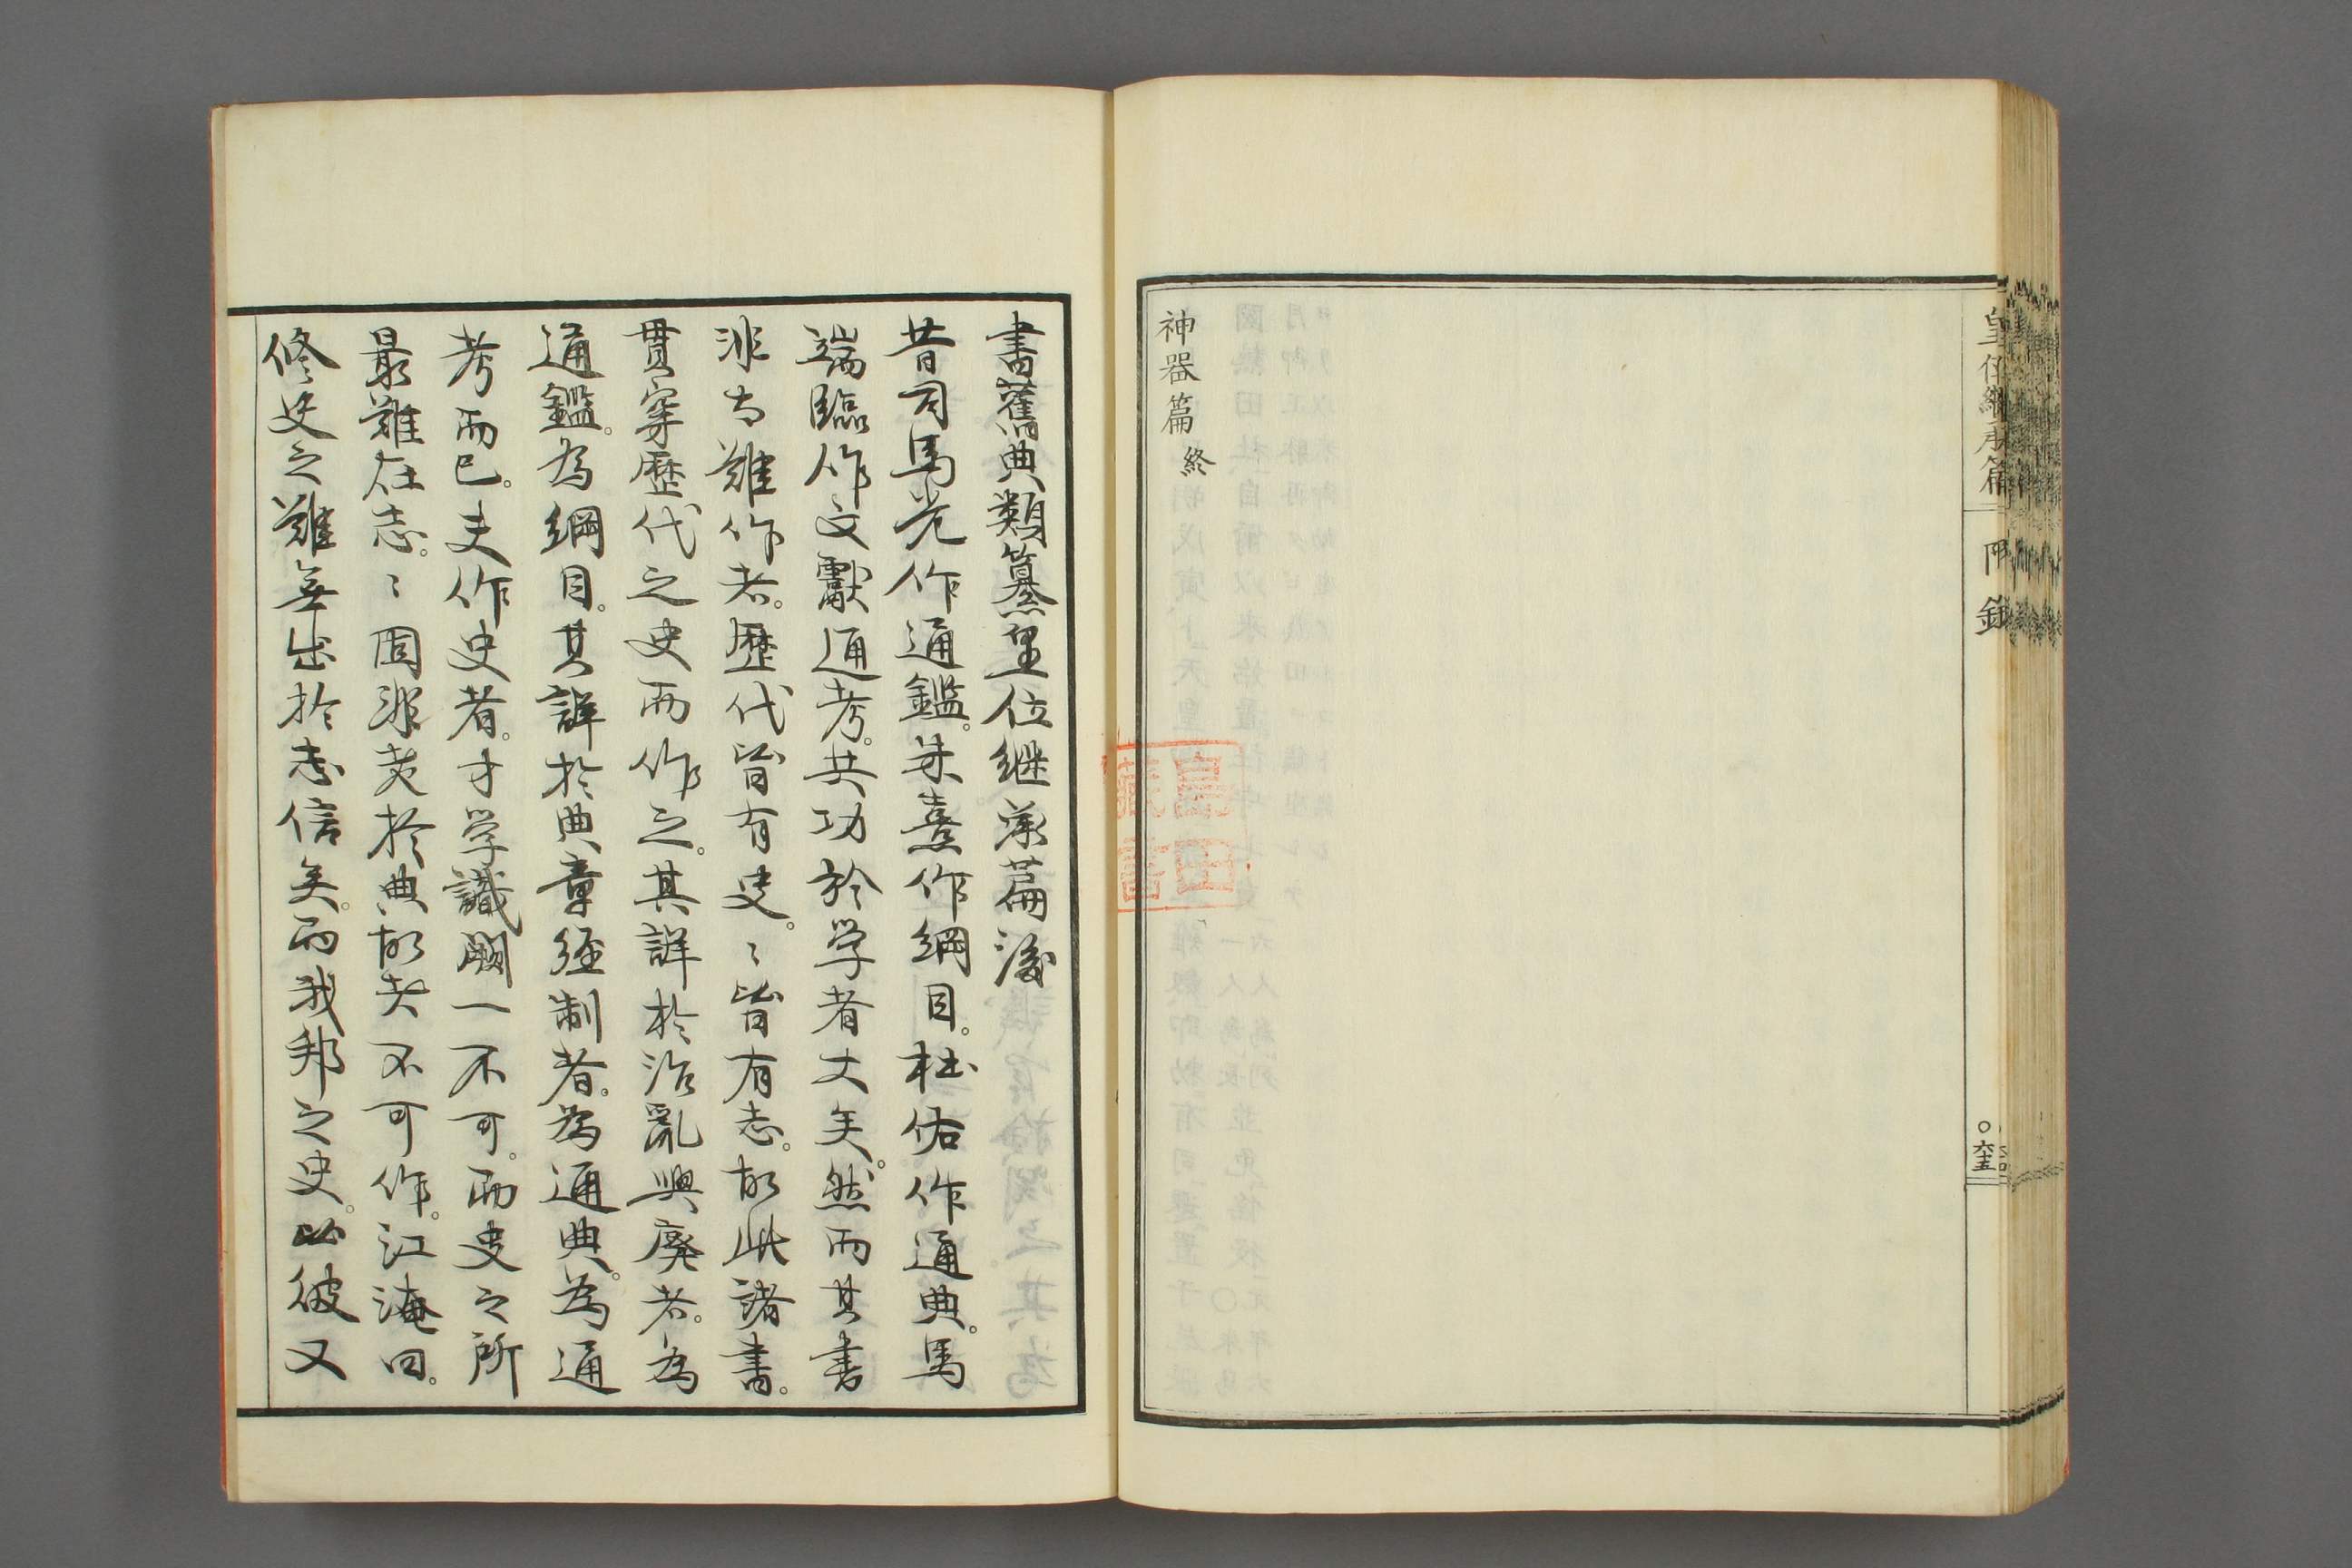 皇位繼承篇 附錄
○六十五
神器篇 終
書舊典類纂皇位継承篇後
昔司馬光作通鑑。朱熹作綱目。杜佑作通典。馬
端臨作文獻通考。其功於学者大矣。然而其書
非甚難作者。歴代皆有史。〻皆有志。故此諸書。
貫穿歴代之史而作之。其詳於治亂興廃者。為
通鑑。為綱目。其詳於典章経制者。為通典。為通
考而已。夫作史者。才学識闕一不可。而史之所
最難在志。〻固非老於典故者不可作。江淹曰。
修史之難無出於志信矣。而我邦之史。比彼又